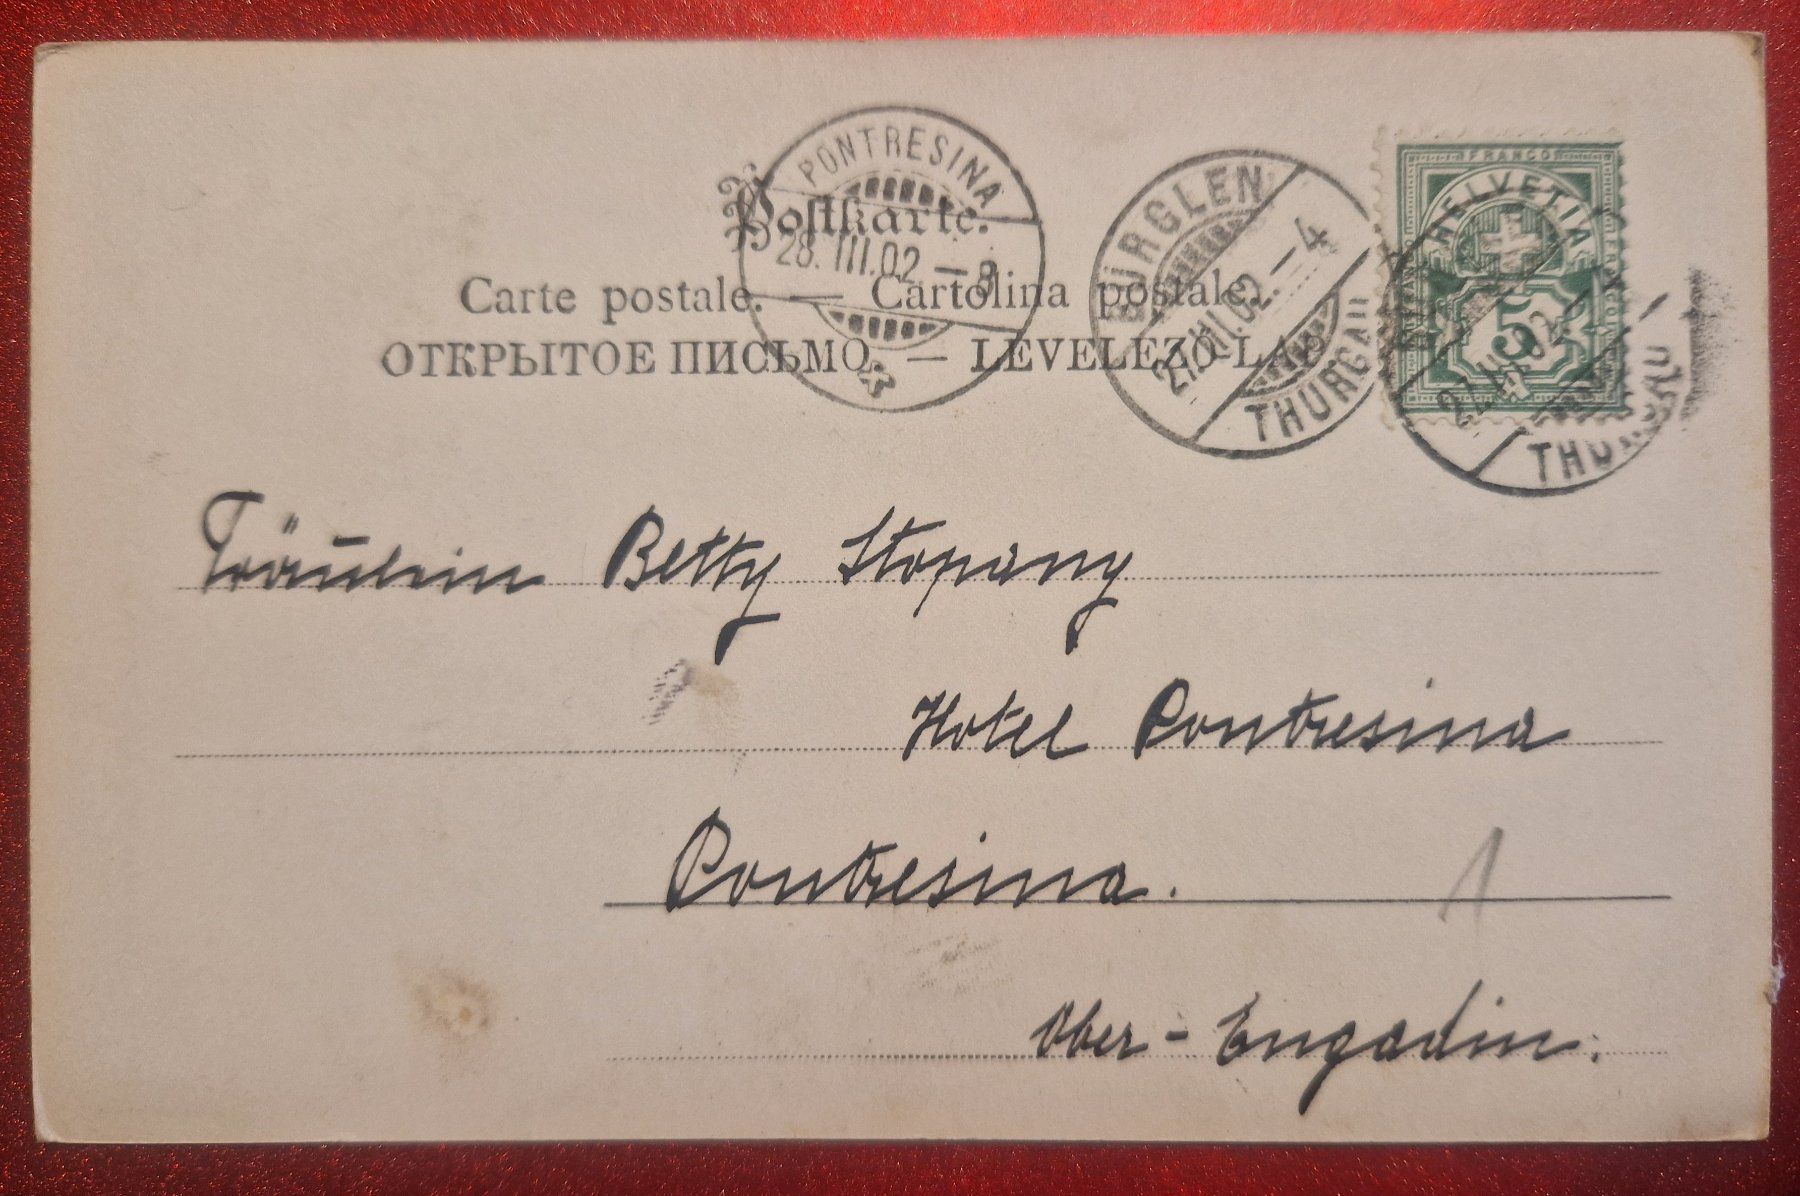 PONTRESINA
28. III.02 – 8
BÜRGLEN
27.III.02.–4
THURGAU
FRANCO
HELVETIA
5
Postkarte.
Carte postale. — Cartolina postale.
ОТКРЫТОЕ ПИСЬМО. — LEVELEZÖ-LAP
Fräulein Betty Stopany
Hotel Pontresina
Pontresina.
1
Ober-Engadin.